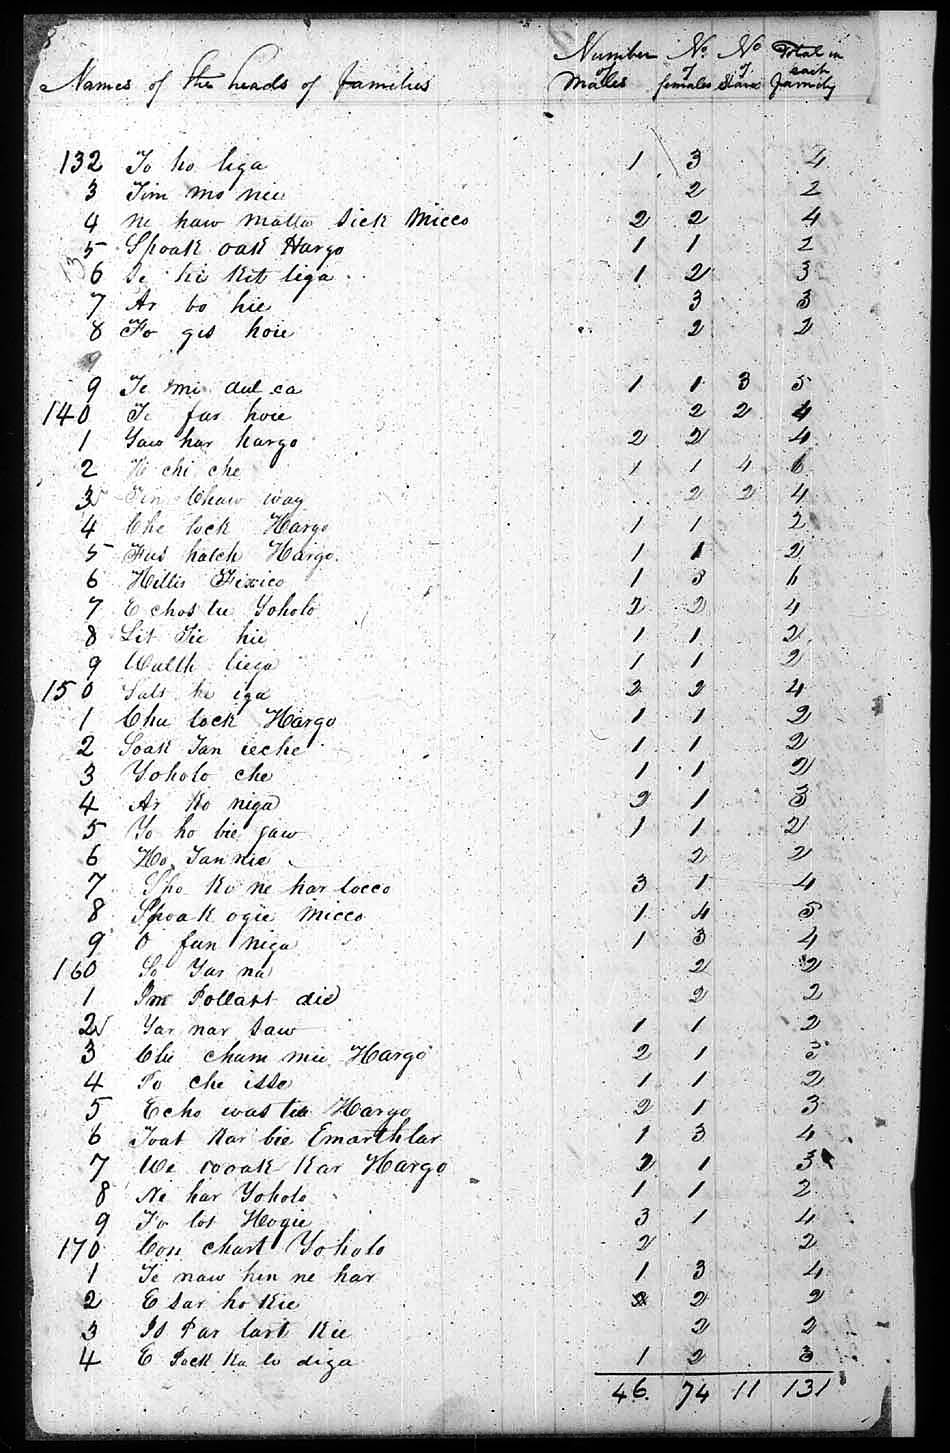 8
Number of Males No. of females No of Slaves Total in each family
Names of the heads of families
132 To ho liga 1 3 4
3 Tim mo nee 2 2
4 Ne haw matta Sick Micco 2 2 4
5 Spoak oak Hargo 1 1 2
6 Se hi kit liga 1 2 3
7 Ar bo hie 3 3
8 Fo gis hoie 2 2
9
9 Te mi dul ca 1 1 3 5
140 Ti far hoie 2 2 4
1 Yaw har hargo 2 2 4
2 chi che 1 1 4 6
3 Chaw way 2 2 4
4 Che lock Hargo 1 1 2
5 Fus hatch Hargo. 1 1 2
6 Hillis Fixico 1 3
7 E chos tee Yoholo 2 2 4
8 Lit Tie hie 1 1 2
9 Walth liega 1 1 2
150 ke iga 2 2 4
1 Chu lock Hargo 1 1 2
2 Soak Tan ieche 1 1 2
3 Yoholo che 1 1 2
4 Ar ko niga 2 1 3
5 Yo ho bie gaw 1 1 2
6 Ho Tan nie 2 2
7 Spo ko ne har locco 3 1 4
8 Spoak ogie Micco 1 4 5
9 O fun niga 1 3 4
160 So Yar na 2 2
1 Pollart die 2 2
2 Yar nar Saw 1 1 2
3 Clu cham mie Hargo 2 1 3
4 Po che isse 1 1 2
5 Echo was tee Hargo 2 1 3
6 Toat Kar bie Emarthlar 1 3 4
7 We wook Kar Hargo 2 1 3
8 Ne har Yoholo 1 1 2
9 Fo lot Hogie 3 1 4
170 Con chart Yoholo 2 2
1 Te naw hen ne har 1 3 4
2 E sar ho Kie 2 2
3 Is Par lart Kee 2 2
4 E Pock Ka lo diga 1 2 3
46. 74 11 131